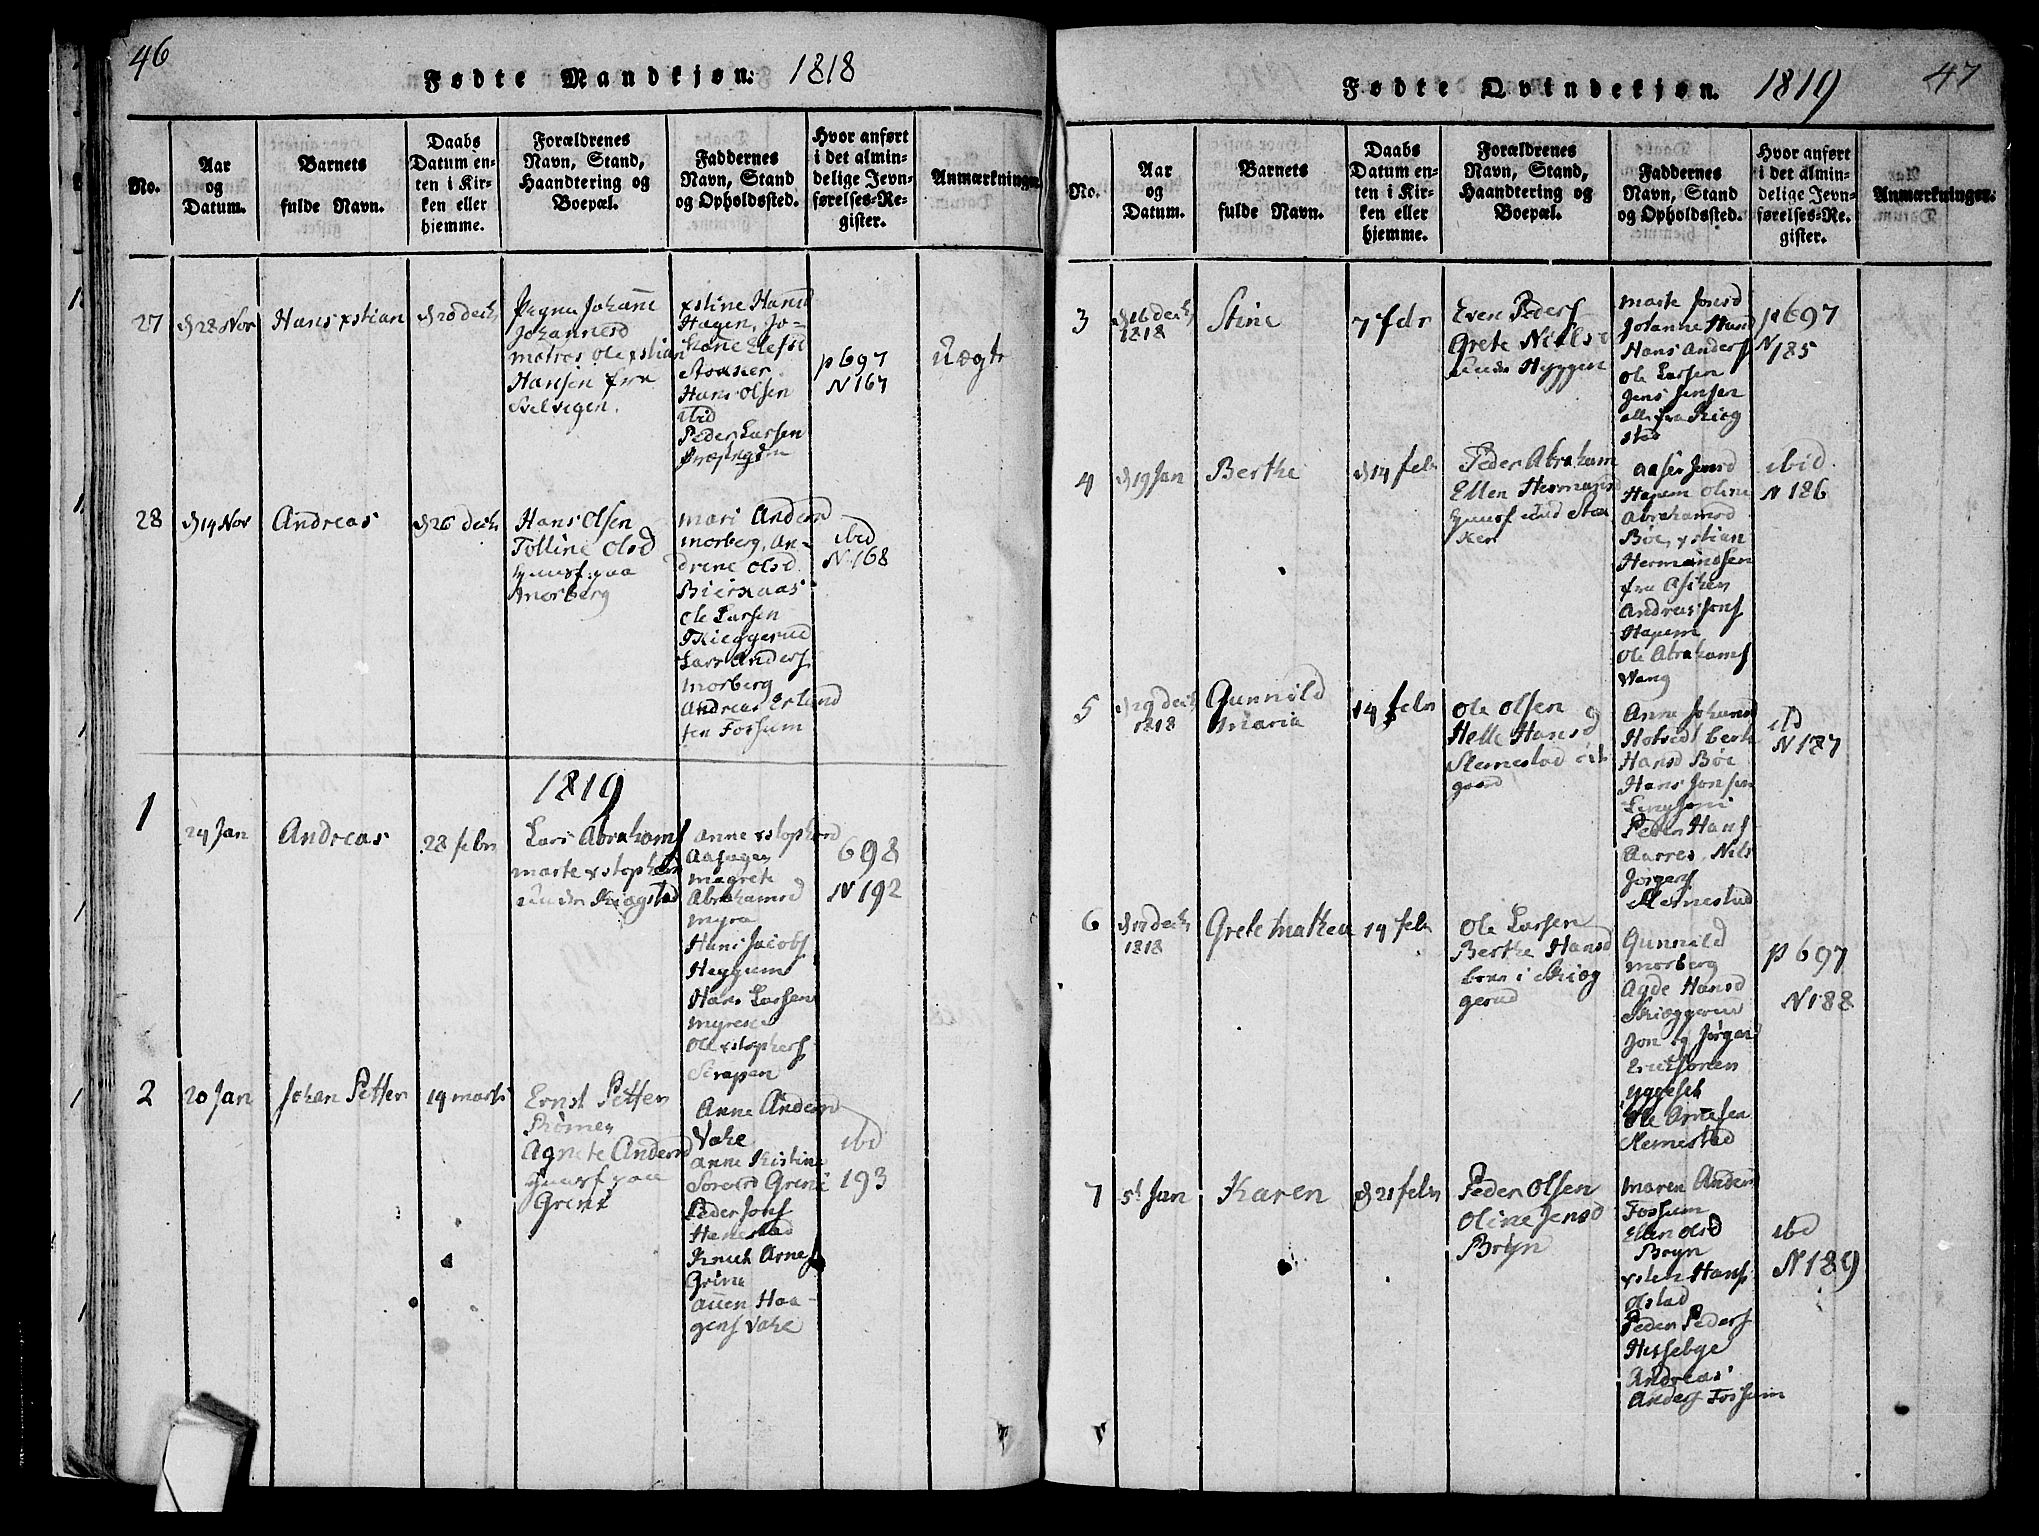 46
Fødte Mandkjøn: 1818
No.
Aar
og
Datum.
Barnets
fulde Navn.
Daabs
Datum en-
ten i Kir-
ken eller
hjemme.
Forældrenes
Navn, Stand,
Haandtering og
Boepæl.
Faddernes
Navn, Stand
og Opholdssted.
Hvor anført
i det almin-
delige Jevn-
førelses-Re-
gister.
Anmærkninger.
27
d 28 Nov
Hans xstian
d 20 dech
Pigen Johane
Johannesd
Ole xstian
Hansen fra
Svelvigen.
xstine Hansd
Hagen, Jo-
hane
Stokker
Hans Olsen
ibid
Peder Larsen
p 697
N 167
Uægte
28
d 14 Nov
Andreas
d 26 dech
Hans Olsen
Tolline Olsd
Huusf. paa
Morberg
Mari Andersd
Morberg, An-
drene Olsd
Biernaas
Ole Larsen
Skieggerud
Lars Anders
Morberg
Andreas Erland
sen Fossum
ibid
N 168
1819
1
24 Jan
Andreas
28 febr
Lars Abrahams
Marte xstophersd
under Kiogstad
Anne xstophersd
Aasagen
Magrete
Abrahamsd
Myra
Hans Jacobs
Heggum
Hans Larsen
Myrese
Ole xstophers
698
N 192
2
20 Jan
Johan Petter
14 marts
Ernst Petter
Agnete Andersd
Huusf paa
Grini
Anne Andersd
Vake
Anne Kistine
Grini
Peder Jons
Hanestad
Knut Arnes
Grine
Auen Haa-
gens Vake
ibd
193
47
Fødte Qvindekjøn. 1819
No.
Aar
og
Datum.
Barnets
fulde Navn.
Daabs
Datum en-
ten i Kir-
ken eller
hjemme.
Forældrenes
Navn, Stand,
Haandtering og
Boepæl.
Faddernes
Navn, Stand
og Opholdssted.
Hvor anført
i det almin-
delige Jevn-
førelses-Re-
gister.
Anmærkninger.
3
d 16 dech
1818
Stine
7 febr
Even Peders
Grete Nielsd
under Hyggen
Marte Jonsd
Johanne Hansd
Hans Anders
Ole Larsen
Jens Jensen
alle fra Kiog
stad
p 697
N 185
4
d 19 Jan
Berthe
d 14 febr
Peder Abraham
Ellen Hermansd
Huusf und Stok
ker
Aase Jensd
Hapem Oline
Abrahamsd
Böe, xstian
Hermandsen
fra Asken
Andreas Jons
Hapem
Ole Abrahams
Wang
ibid.
N 186
5
d 29 dech
1818
Gunnild
Maria
14 febr
Ole Olsen
Helle Hansd
Slemestad
gaard
Anne Johansd
Berte
Hansd Böe
Hans Jonsen
Peder Hans
Aarres, Nils
Jörgens
Slemestad
ibd
N 187
6
d 17 dech
1818
Grete Mathea
14 febr
Ole Larsen
Berthe Hansd
boer i Skiog
gerud
Gunnild
Morberg
Agde Hansd
Skioggerud
Jon og Jörgen
Ericksönen
Yggeset
Ole Arnesen
Slemestad
p 697
N 188
7
5t Jan
Karen
d 21 febr
Peder Olsen
Oline Jensd
Bryn
Maren Anders
Fossum
Ellen Olsd
Bryn
xsten Hans
Olstad
Peder Peders
Hersebye
Andreas
Anders Fossum
ibd
N 189